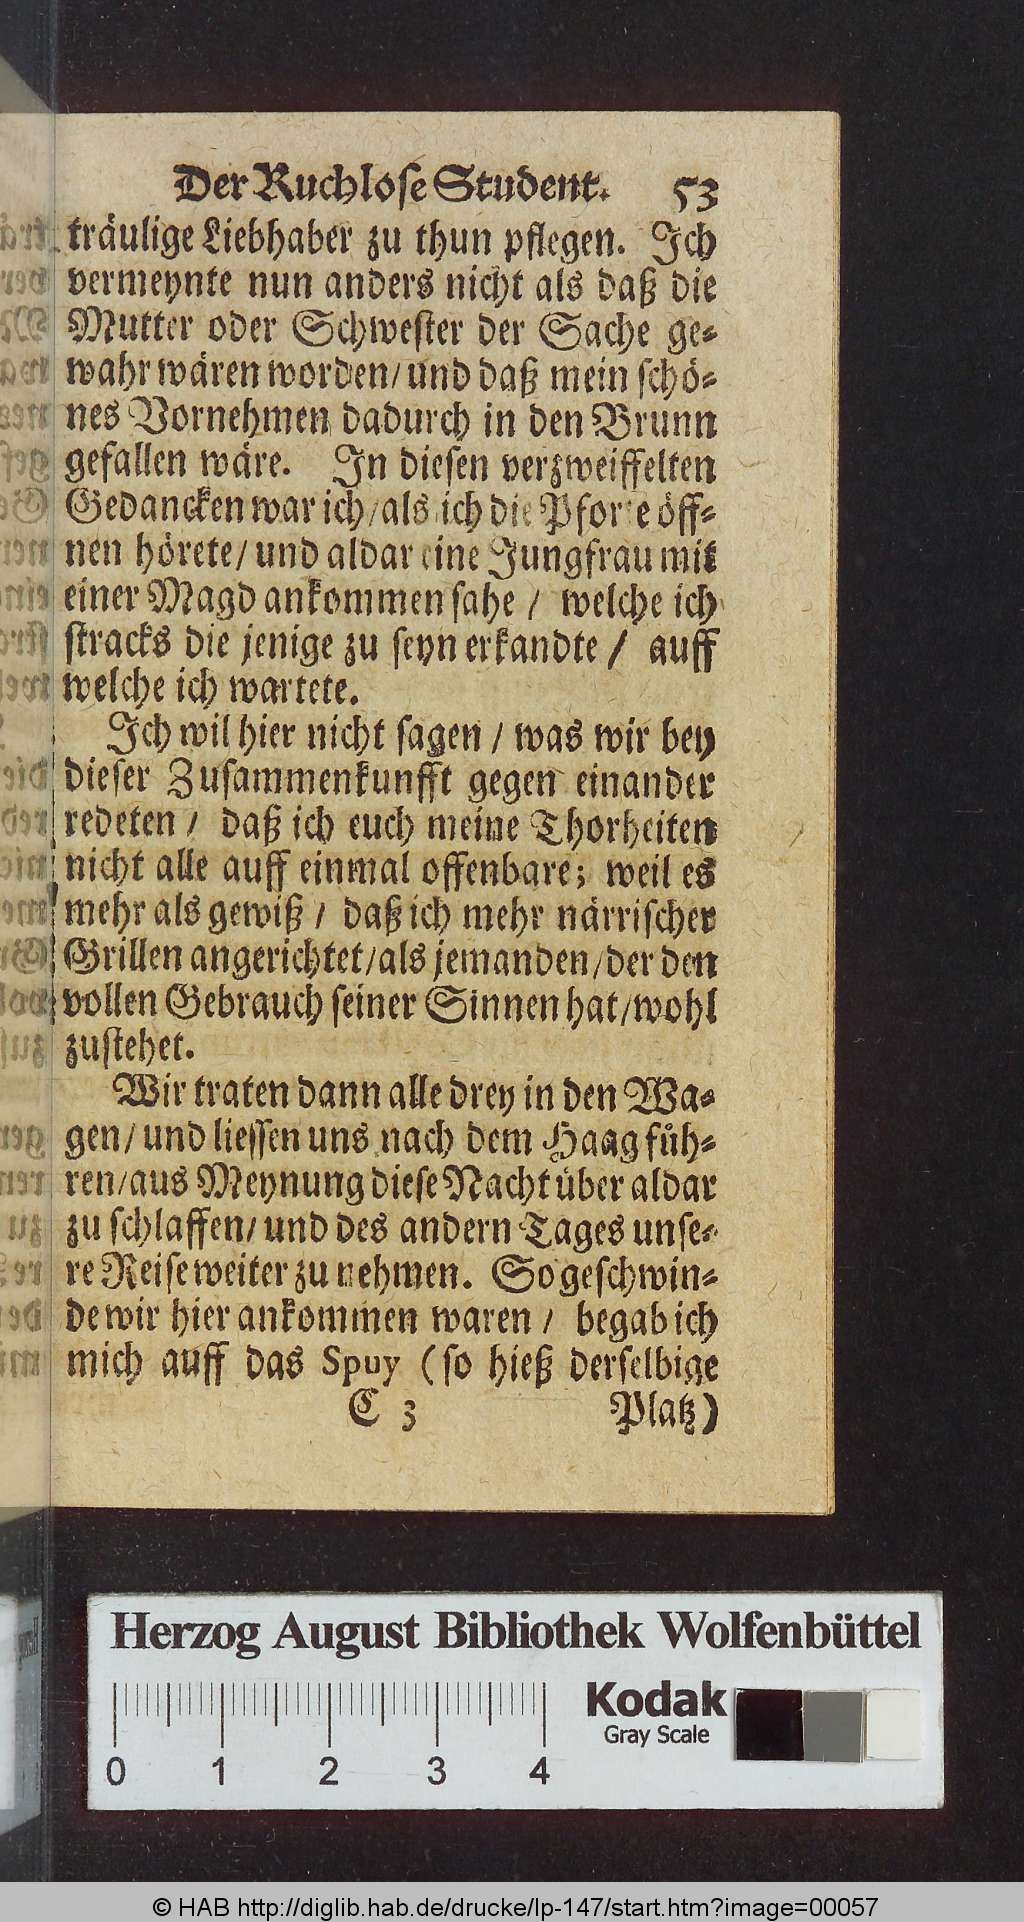 Der Ruchlose Student. 53
träulige Liebhaber zu thun pflegen. Ich
vermeynte nun anders nicht als daß die
Mutter oder Schwester der Sache ge-
wahr wären worden/ und daß mein schö-
nes Vornehmen dadurch in den Brunn
gefallen wäre. In diesen verzweiffelten
Gedancken war ich/ als ich die Pforte öff-
nen hörete/ und aldar eine Jungfrau mit
einer Magd ankommen sahe / welche ich
stracks die jenige zu seyn erkandte / auff
welche ich wartete.
Ich wil hier nicht sagen / was wir bey
dieser Zusammenkunfft gegen einander
redeten / daß ich euch meine Thorheiten
nicht alle auff einmal offenbare; weil es
mehr als gewiß / daß ich mehr närrischer
Grillen angerichtet/ als jemanden/ der den
vollen Gebrauch seiner Sinnen hat/ wohl
zustehet.
Wir traten dann alle drey in den Wa-
gen/ und liessen uns nach dem Haag füh-
ren/ aus Meynung diese Nacht über aldar
zu schlaffen/ und des andern Tages unse-
re Reise weiter zu nehmen. So geschwin-
de wir hier ankommen waren / begab ich
mich auff das Spuy ( so hieß derselbige
C 3 Platz)
Herzog August Bibliothek Wolfenbüttel
Kodak
Gray Scale
0 1 2 3 4
© HAB http://diglib.hab.de/drucke/lp-147/start.htm?image=00057